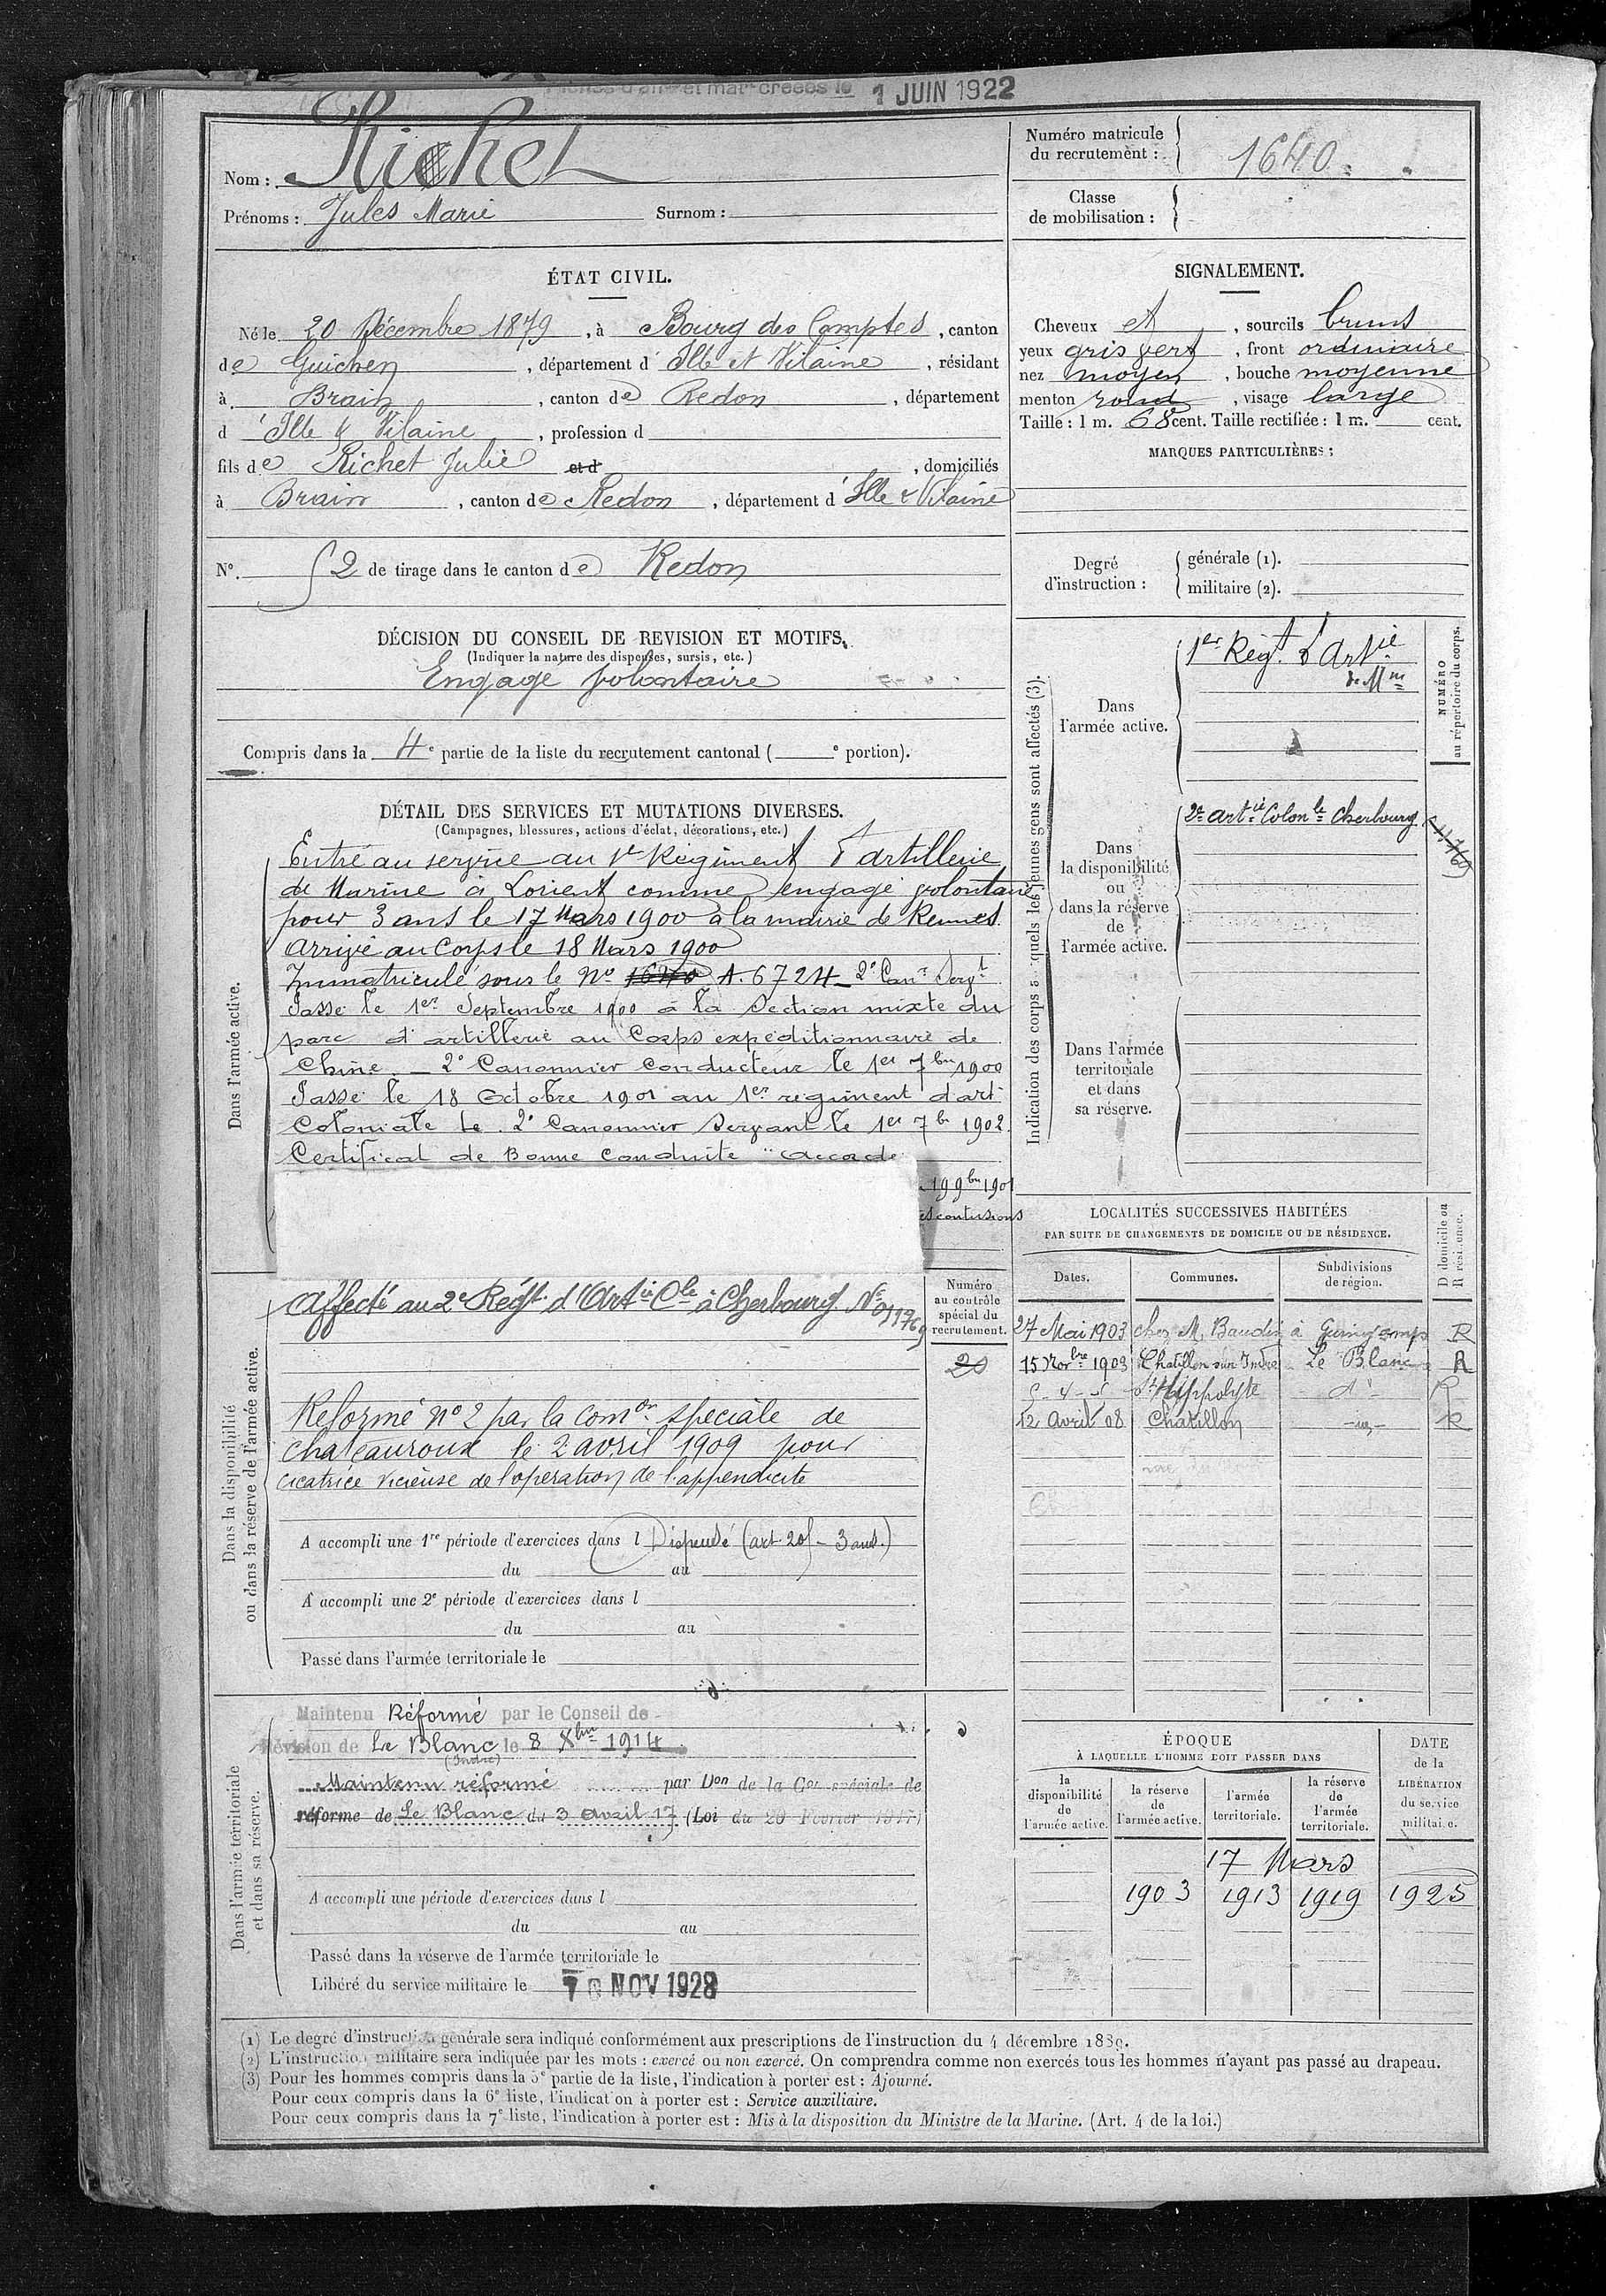 1 JUIN 1922
Nom : Richet
Prénoms : Jules Marie Surnom :
Numéro matricule
du recrutement : 1640
Classe
de mobilisation :
ÉTAT CIVIL.
Né le 20 Décembre 1879, à Bourg des Comptes, canton
de Guichen, département d'Ille et Vilaine, résidant
à Brain, canton de Redon, département
d'Ille & Vilaine, profession d
fils de Richet Julie et d , domiciliés
à Brain, canton de Redon, département d'Ille & Vilaine
N°. 2 de tirage dans le canton de Redon
SIGNALEMENT.
Cheveux et, sourcils bruns
yeux gris vert, front ordinaire
nez moyen, bouche moyenne
menton rond, visage large
Taille : 1 m. 68 cent. Taille rectifiée : 1 m. cent.
MARQUES PARTICULIÈRES :
Degré
d'instruction :
générale (1).
militaire (2).
DÉCISION DU CONSEIL DE REVISION ET MOTIFS.
(Indiquer la nature des dispenses, sursis, etc.)
Engagé volontaire
Compris dans la 4e partie de la liste du recrutement cantonal ( e portion).
DÉTAIL DES SERVICES ET MUTATIONS DIVERSES.
(Campagnes, blessures, actions d'éclat, décorations, etc.)
Dans l'armée active.
Entré au service au 1er Régiment d'artillerie
de Marine à Lorient comme engagé volontaire
pour 3 ans le 17 Mars 1900 à la mairie de Rennes.
Arrivé au Corps le 18 Mars 1900
Immatriculé sous le No 1640 A. 6724 - 2e Canr Servt
Passé le 1er Septembre 1900 à la Section mixte du
parc d'artillerie au Corps expéditionnaire de
Chine. - 2e Canonnier Conducteur le 1er 7bre 1900
Passé le 18 Octobre 1901 au 1er régiment d'art.
Coloniale Le. 2e Canonnier Servant le 1er 7b 1902.
Certificat de Bonne Conduite "accordé
9bre 1901
contusions
Indication des corps auxquels les jeunes gens sont affectés (3).
NUMÉRO
au répertoire du corps.
Dans
l'armée active.
1er Régt. d'Artie
de Mne
Dans
la disponibilité
ou
dans la réserve
de
l'armée active.
2e artie Colonle Cherbourg
Dans l'armée
territoriale
et dans
sa réserve.
Dans la disponibilité
ou dans la réserve de l'armée active.
Affecté au 2e Régt. d'Artie Cle à Cherbourg No 01176
Numéro
au contrôle
spécial du
recrutement.
20
Réformé no 2 par la Comon spéciale de
Chateauroux le 2 avril 1909 pour
cicatrice vicieuse de l'opération de l'appendicite
A accompli une 1re période d'exercices dans l Dispensé (art. 20 - 3 ans.)
du au
A accompli une 2e période d'exercices dans l
du au
Passé dans l'armée territoriale le
LOCALITÉS SUCCESSIVES HABITÉES
PAR SUITE DE CHANGEMENTS DE DOMICILE OU DE RÉSIDENCE.
D domicile ou
R résidence.
Dates. Communes. Subdivisions
de région.
27 Mai 1903 chez M. Baudin à Guingamp R
15 Novbre 1903 Chatillon sur Indre Le Blanc R
St Hippolyte do R
12 Avril 08 Châtillon R
Dans l'armée territoriale
et dans sa réserve.
Maintenu Réformé par le Conseil de
Révision de Le Blanc le 8 Xbre 1914
(Indre)
Maintenu réformé par Don de la Con spéciale de
réforme de Le Blanc du 3 avril 17 (Loi du 20 Février 1917)
A accompli une période d'exercices dans l
du au
Passé dans la réserve de l'armée territoriale le
Libéré du service militaire le NOV 1928
ÉPOQUE
À LAQUELLE L'HOMME DOIT PASSER DANS
la
disponibilité
de
l'armée active.
la réserve
de
l'armée active.
l'armée
territoriale.
la réserve
de
l'armée
territoriale.
DATE
de la
LIBÉRATION
du service
militaire.
17 Mars
1903 1913 1919 1925
(1) Le degré d'instruction générale sera indiqué conformément aux prescriptions de l'instruction du 4 décembre 1889.
(2) L'instruction militaire sera indiquée par les mots : exercé ou non exercé. On comprendra comme non exercés tous les hommes n'ayant pas passé au drapeau.
(3) Pour les hommes compris dans la 5e partie de la liste, l'indication à porter est : Ajourné.
Pour ceux compris dans la 6e liste, l'indication à porter est : Service auxiliaire.
Pour ceux compris dans la 7e liste, l'indication à porter est : Mis à la disposition du Ministre de la Marine. (Art. 4 de la loi.)